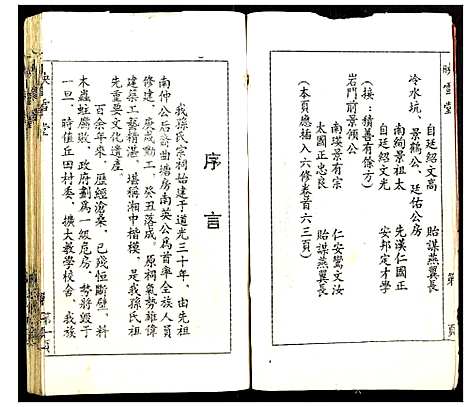 映雪堂
冷水坑、景鶴公、廷佑公房
自廷紹文高 貽謀燕翼長
南絢景祖太 先漢仁國正
自廷紹文光 安邦定才學
(接：積善有餘方)
岩門前景領公
南瑛景有宗 仁安鸞文汝
太國正忠良 貽謀燕翼長
(本頁應插入六修卷首六三頁)
第 頁
序言
我孫氏宗祠始建于道光三十年，由先祖
南仲公后裔曲塘房南英公為首率全族人員
修建，庚戌動工，癸丑落成，原祠氣勢雄偉
建築工藝精湛，堪稱湘中楷模，是我孫氏祖
先重要文化遺產。
百余年來，歷經滄桑，已殘恒斷壁，料
木蟲蛀腐敗，政府劃為一級危房，勢將毀于
一旦。時值丘田村委，擴大教學校舍，我族
映雪堂
第一頁